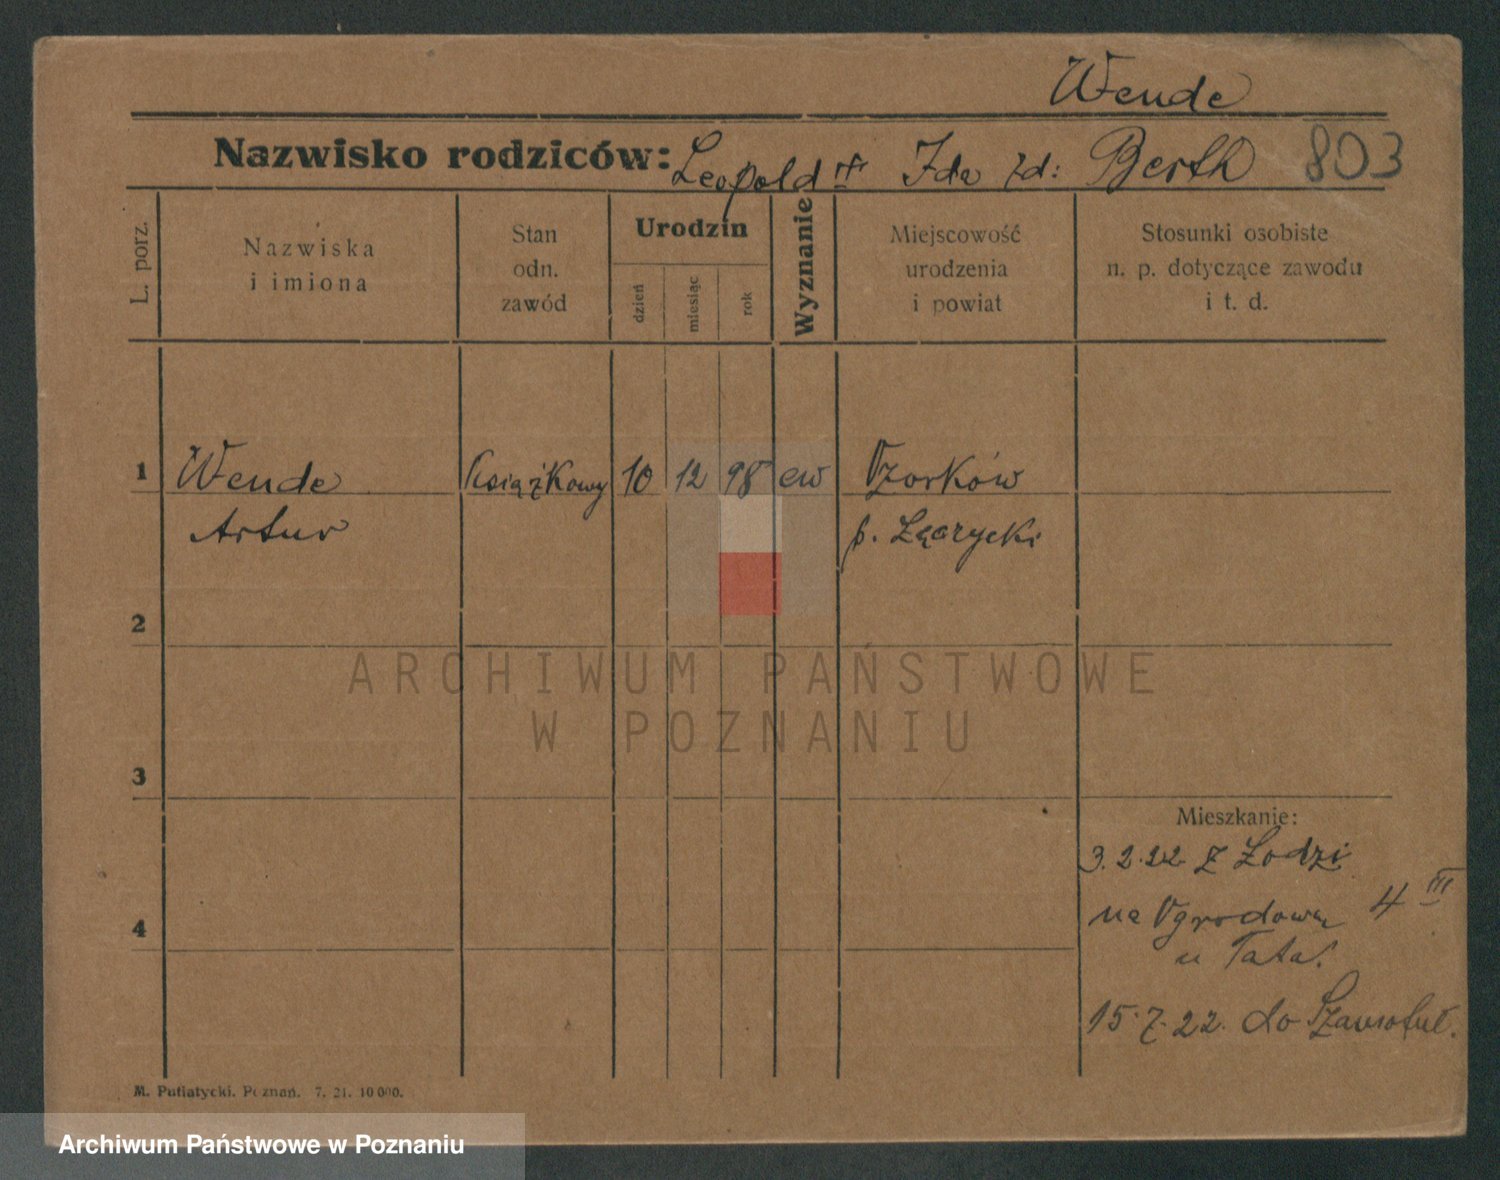 Wende
Nazwisko rodziców: Leopold Ida zd: Berth 803
L. porz.
Nazwiska
i imiona
Stan
odn.
zawód
Urodzin
dzień
miesiąc
rok
Wyznanie
Miejscowość
urodzenia
i powiat
Stosunki osobiste
n. p. dotyczące zawodu
i t. d.
1 Wende książkowy 10 12 98 ew Ozorków
Artur p. Łęczycki
2
3
Mieszkanie:
3.2.22 z Łodzi
na Ogrodową 4 III
4
u Tata.
15.7.22. do Szamotuł.
M. Putiatycki. Poznań. 7. 21. 10000.
ARCHIWUM PAŃSTWOWE
W POZNANIU
Archiwum Państwowe w Poznaniu